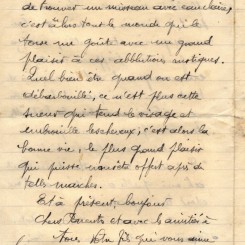 de trouver un ruisseau avec eau claire,
c'est alors tout le monde qui le
torse nu goûte avec un grand
plaisir à ces abblutions rustiques.
Quel bien être quand on est
débarbouillé, ce n'est plus cette
sueur qui tend le visage et
embrouille les cheveux, c'est alors la
bonne vie, le plus grand plaisir
qui puisse nous être offert après de
telles marches.
Et à présent, bonjour
chers Parents et avec les amitiés à
tous, votre fils qui vous aime